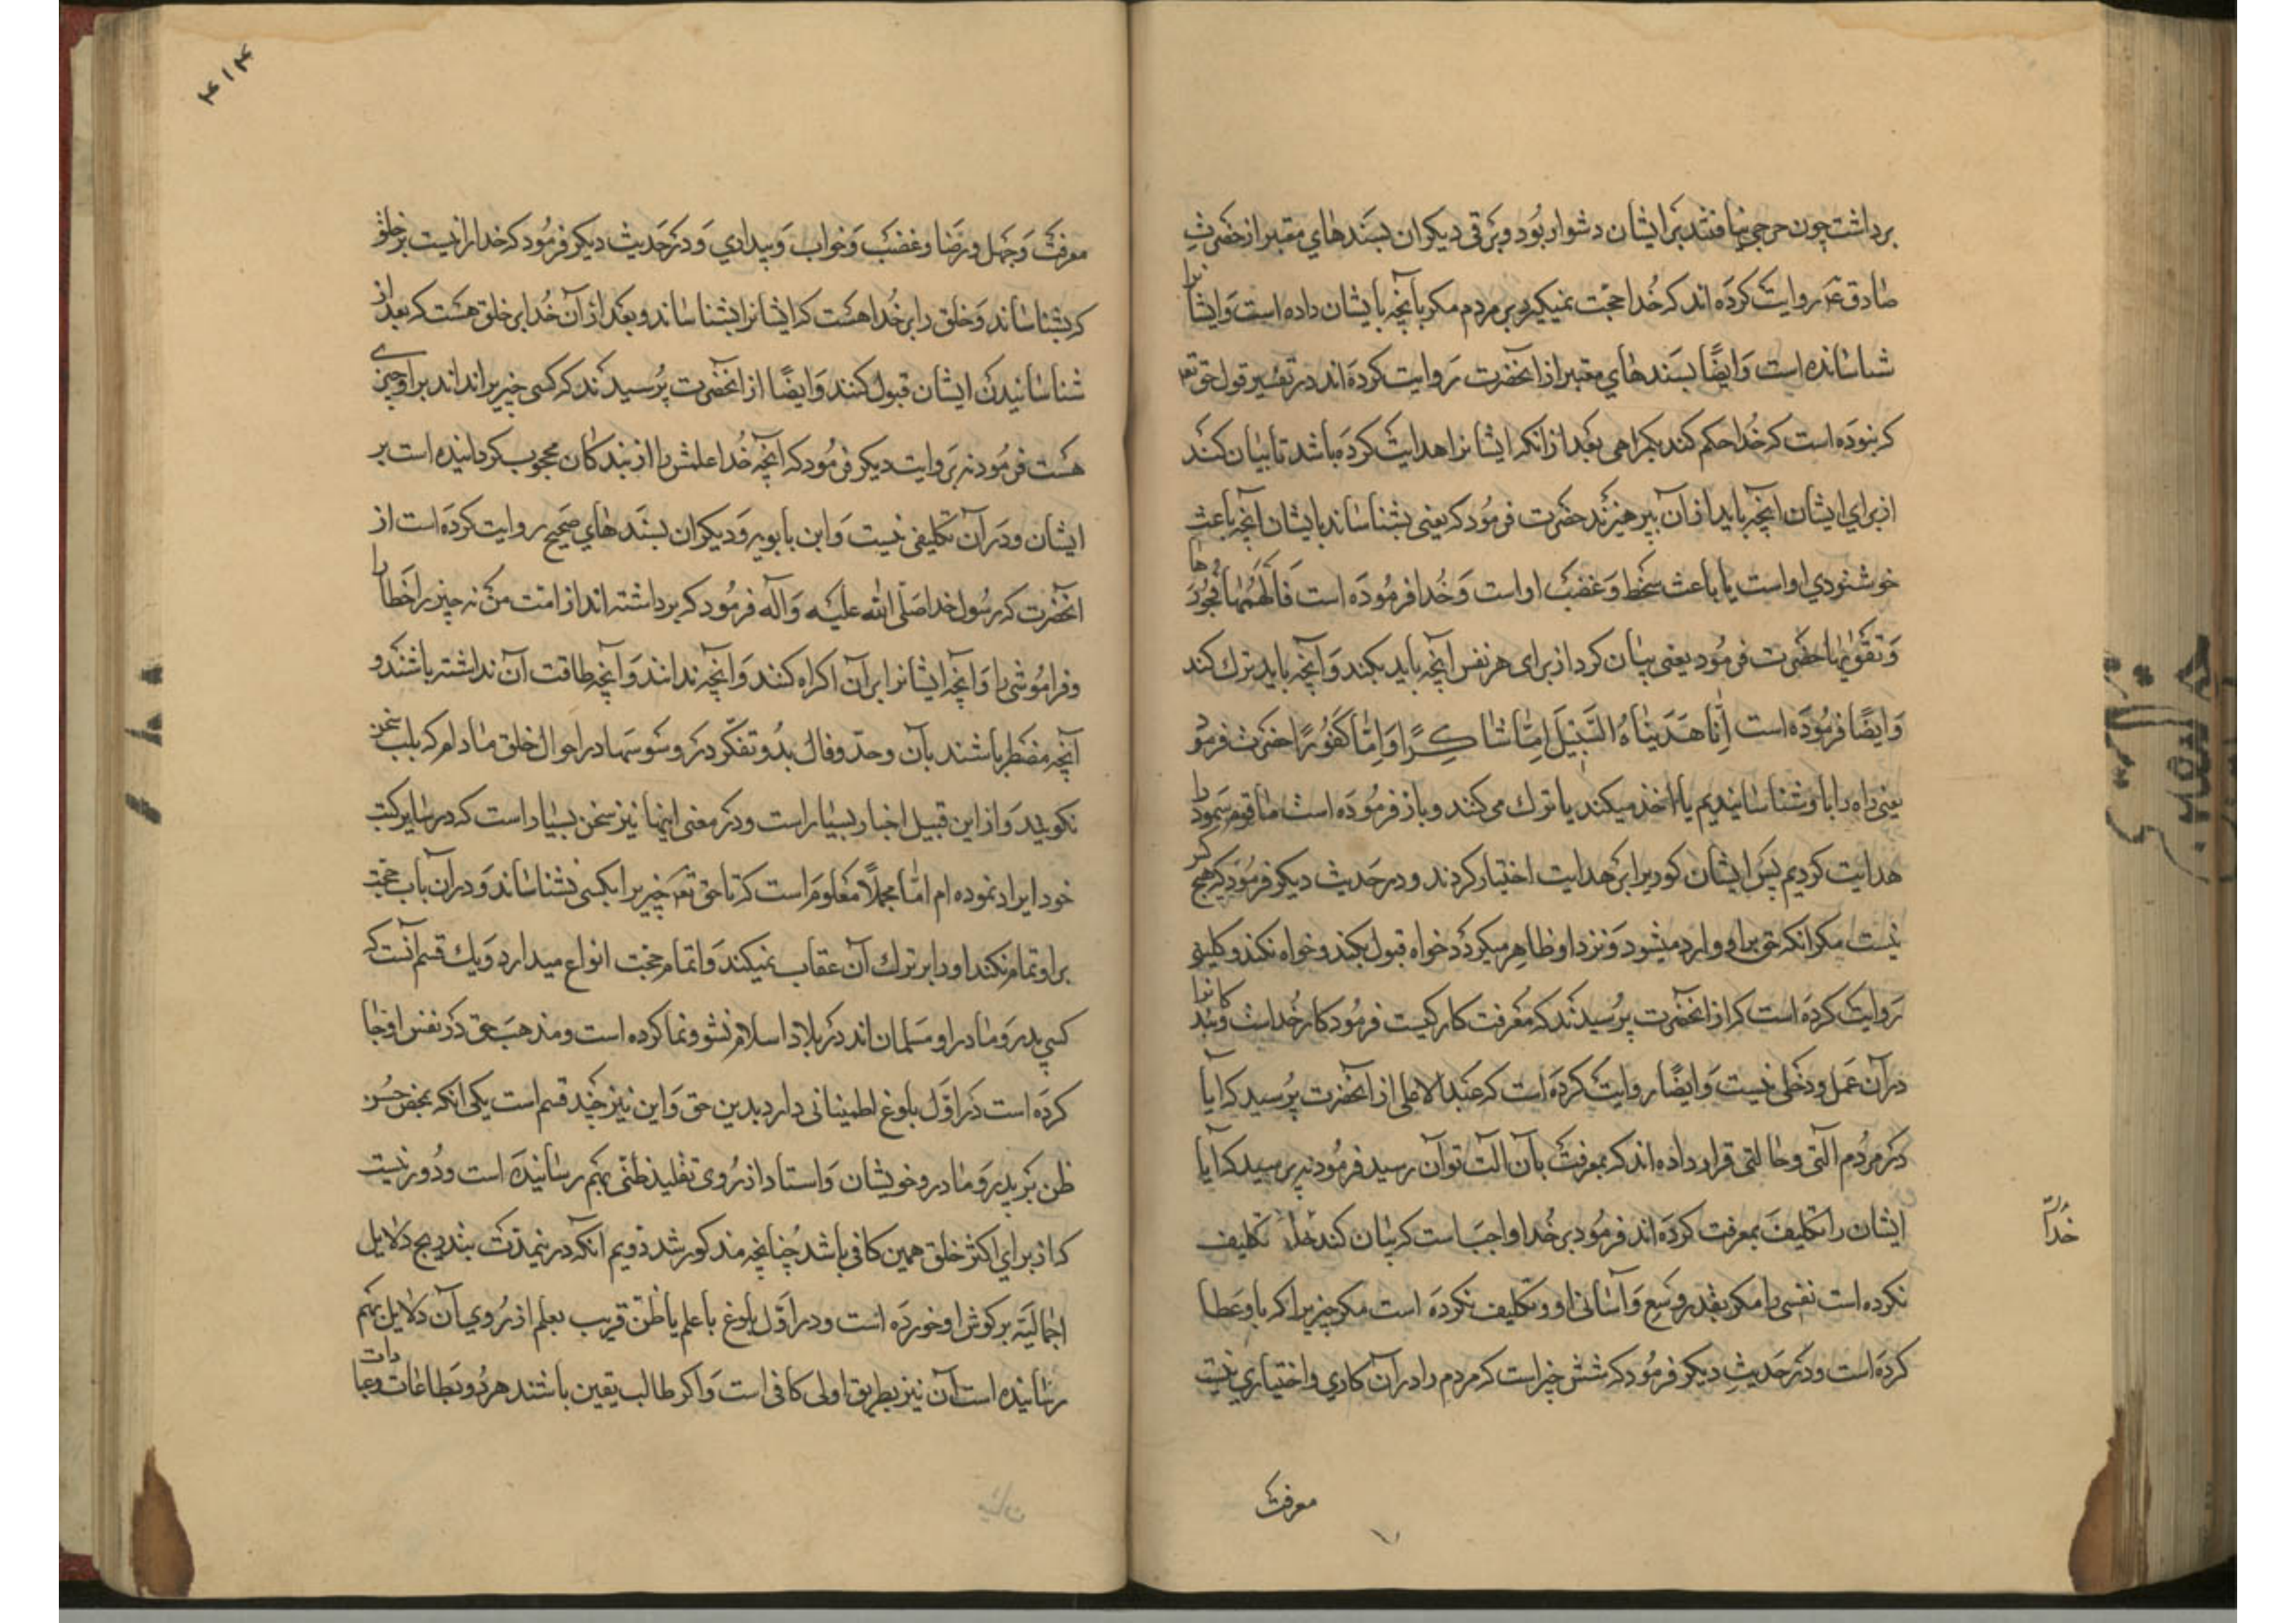 برداشت چون حرجی نیافتند بر ایشان دشوار بود و برقی و دیکران بسندهای معتبر از حضرت
صادق ع روایت کرده اند که خدا حجت نمیکیرد بر مردم مکر بآنچه بایشان داده است و ایشانرا
شناسانده است و ایضًا بسندهای معتبر از انحضرت روایت کرده اند در تفسیر قول حق تع
که نبوده است که خدا حکم کند بکمراهی بعد از انکه ایشانرا هدایت کرده باشد تا بیان کند
از برای ایشان آنچه باید از آن بپرهیزند حضرت فرمود که یعنی بشناساند بایشان آنچه باعث
خوشنودی او است یا باعث سخط و غضب او است و خدا فرموده است فَاَلْهَمَهٰا فُجُورَهٰا
وَ تَقْوٰیهٰا حضرت فرمود یعنی بیان کرد از برای هر نفس آنچه باید بکند و آنچه باید ترک کند
و ایضًا فرموده است اِنّٰا هَدَیْنٰاهُ السَّبیٖلَ اِمّٰا شٰاکِرًا وَ اِمّٰا کَفُورًا حضرت فرمود
یعنی راه را باو شناسانیدیم یا اخذ میکند یا ترک می کند و باز فرموده است ما قوم ثمود را
هدایت کردیم پس ایشان کوری را بر هدایت اختیار کردند و در حدیث دیکر فرمود که هیچ کس
نیست مکر انکه حق بر او وارد میشود و نزد او ظاهر میکردد خواه قبول بکند و خواه نکند و کلینی
روایت کرده است که از انحضرت پرسیدند که معرفت کار کیست فرمود کار خداست و بندکانرا
در آن عمل و دخلی نیست و ایضًا روایت کرده است که عبدالاعلی از انحضرت پرسید که ایا
در مردم آلتی و حالتی قرار داده اند که بمعرفت بآن آلت توآن رسید فرمود نه پرسید که آیا
ایشان را تکلیف بمعرفت کرده اند فرمود بر خدا واجب است که بیان کند خدا تکلیف
خدا
نکرده است نفسی را مکر بقدر وسع و آسانی او و تکلیف نکرده است مکر چیزیرا که باو عطا
کرده است و در حدیث دیکر فرمود که شش چیز است که مردم را در آن کاری و اختیاری نیست
معرفت
۴۱۴
معرفت و جهل و رضا و غضب و خواب و بیداری و در حدیث دیکر فرمود که خدا را نیست بر خلق
که بشناساند و خلق را بر خدا هست که ایشانرا بشناساند و بعد از آن خدا بر خلق هست که بعد از
شناسانیدن ایشان قبول کنند و ایضًا از انحضرت پرسیدند که کسی چیزیرا نداند بر او چیزی
هست فرمود نه بروایت دیکر فرمود که آنچه خدا علمش را از بندکان محجوب کردانیده است بر
ایشان و در آن تکلیفی نیست و ابن بابویه و دیکران بسندهای صحیح روایت کرده است از
انحضرت که رسول خدا صلی الله علیه و آله فرمود که برداشته اند از امت من نه چیز را خطا را
و فراموشی را و آنچه ایشانرا بر آن اکراه کنند و آنچه ندانند و آنچه طاقت آن نداشته باشند و
آنچه مضطر باشند بآن و حد و فال بد و تفکر در وسوسها در احوال خلق مادام که بلب سخن
نکویند و از این قبیل اخبار بسیار است و در معنی اینها نیز سخن بسیار است که در سایر کتب
خود ایراد نموده ام اما مجملًا معلوم است که تا حق تع چیزیرا بکسی نشناساند و در آن باب حجت
بر او تمام نکند او را بر ترک آن عقاب نمیکند و اتمام حجت انواع میدارد و یک قسم آنست که
کسی پدر و مادر او مسلمان اند در بلاد اسلام نشو و نما کرده است و مذهب حق در نفس او جا
کرده است در اول بلوغ اطمینانی دارد بدین حق و این نیز چند قسم است یکی انکه بمحض حسن
ظن بر پدر و مادر و خویشان و استاد از روی تقلید ظنی بهم رسانیده است و دور نیست
که از برای اکثر خلق همین کافی باشد چنانچه مذکور شد دویم انکه در نیمدت بتدریج دلایل
اجمالیه بر کوش او خورده است و در اول بلوغ با علم یا ظن قریب بعلم از روی آن دلایل بهم
رسانیده است آن نیز بطریق اولی کافی است و اکر طالب یقین باشند هر دو بطاعات و عبادات